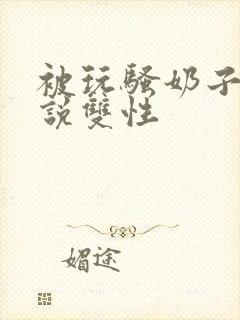 被玩騷奶子
說雙性
媚途